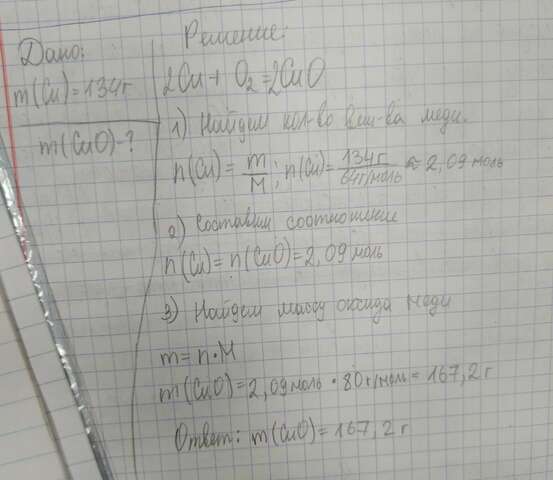 Дано:
m(Cu)=134г
m(CuO)-?
Решение:
2Cu+O₂=2CuO
1) Найдем кол-во вещ-ва меди.
n(Cu)=m/M; n(Cu)=134г/64г/моль≈2,09моль
2) Составим соотношение
n(Cu)=n(CuO)=2,09моль
3) Найдем массу оксида меди
m=n·M
m(CuO)=2,09моль·80г/моль=167,2г
Ответ: m(CuO)=167,2г